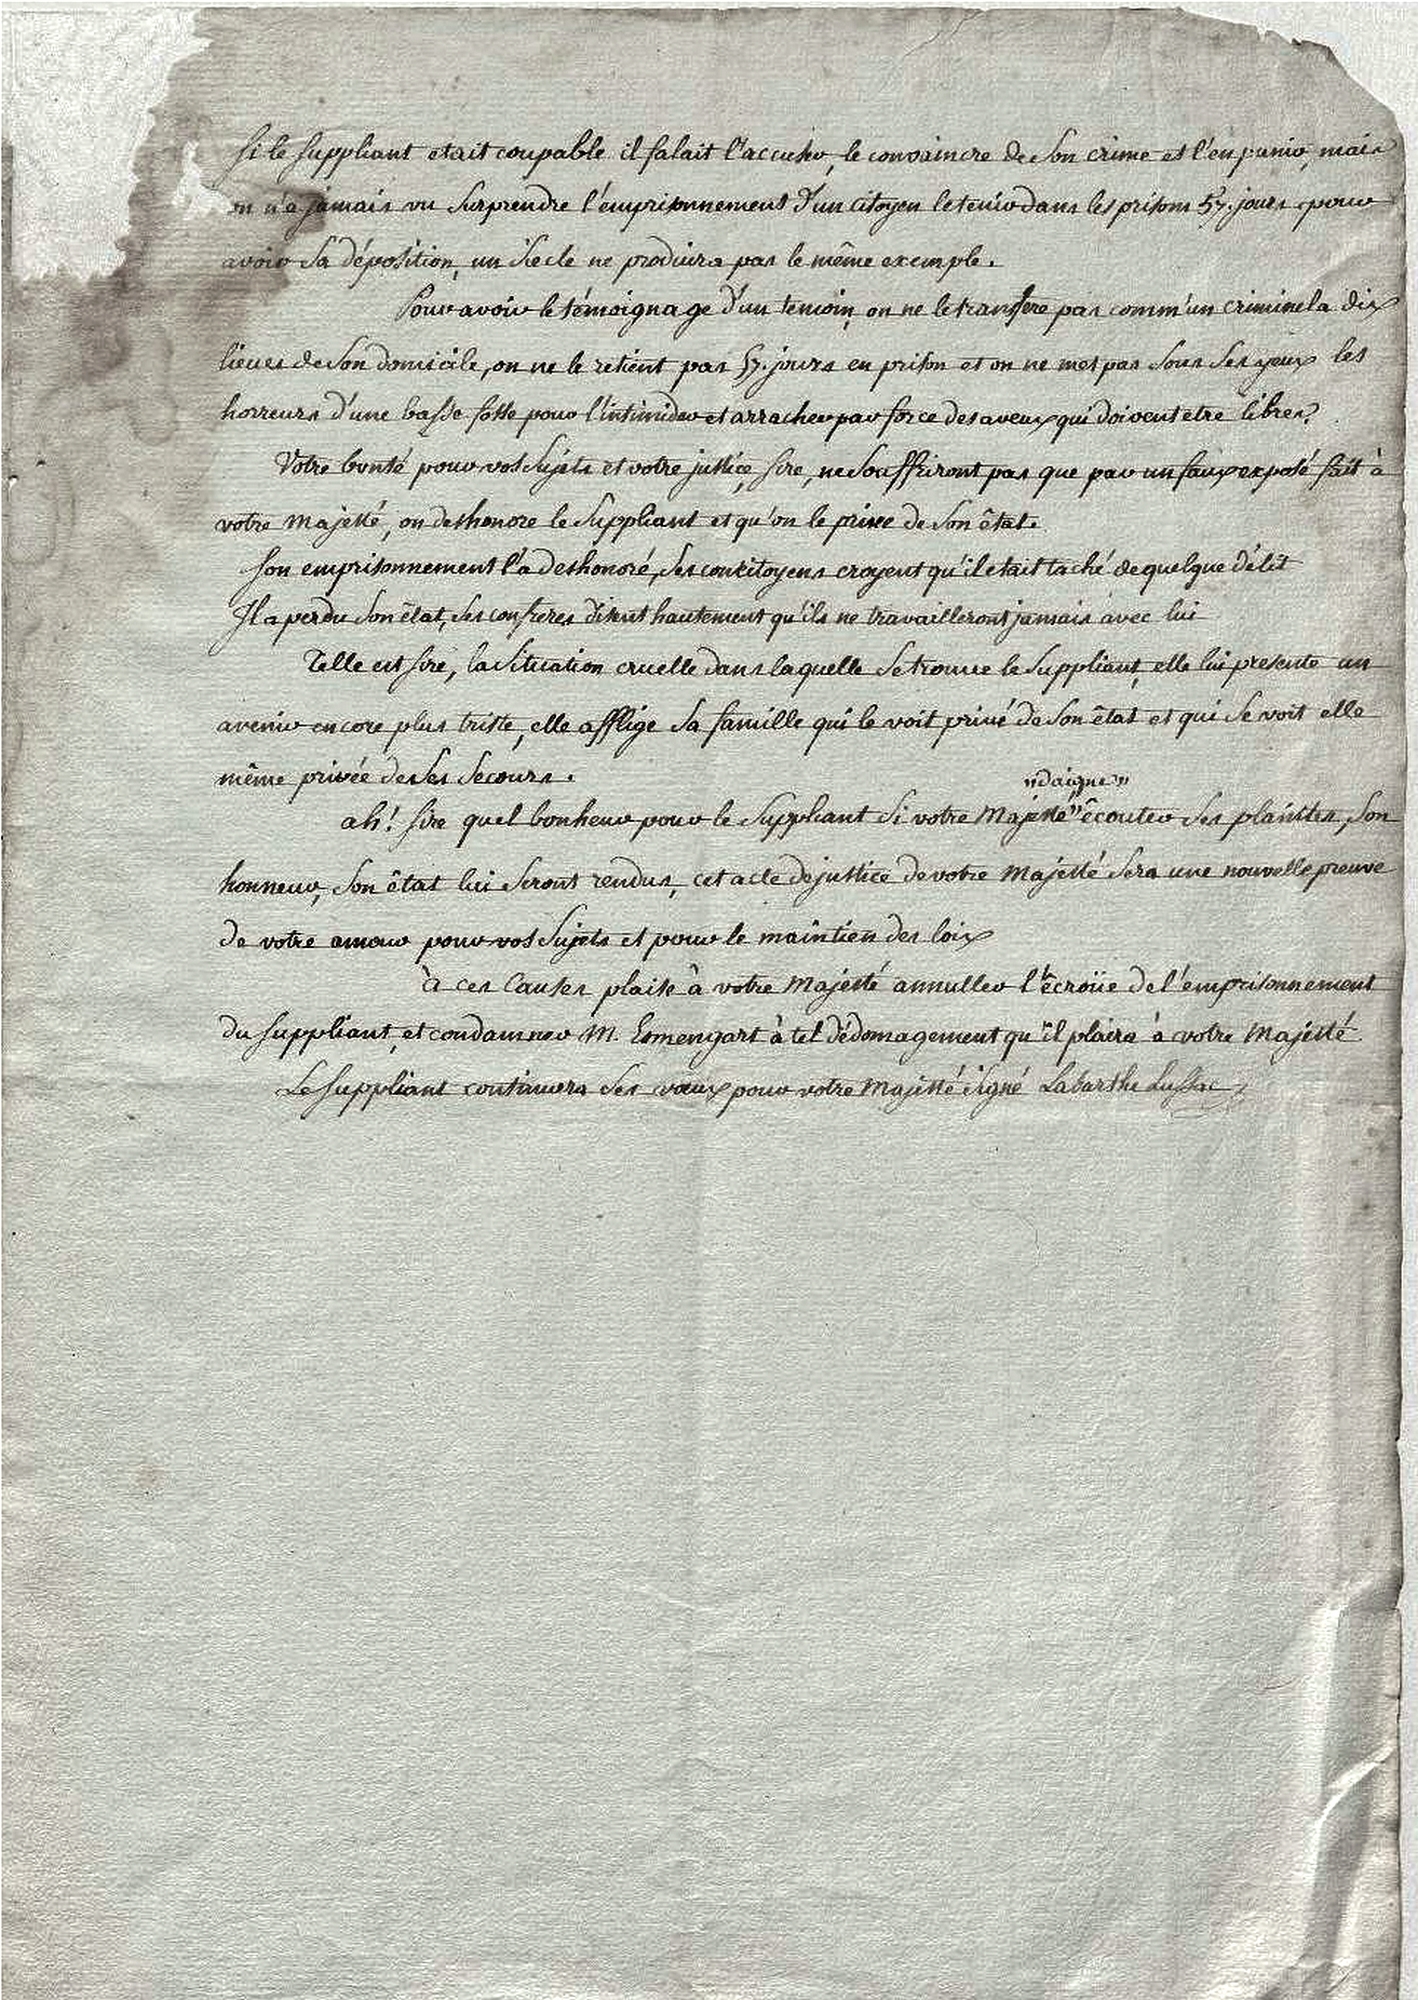 Si le Suppliant etait coupable il falait l'accuser, le convaincre de Son crime et l'en punir, mais
on n'a jamais vu Surprendre l'emprisonnement d'un citoyen le tenir dans les prisons 57. jours pour
avoir Sa déposition, un Siecle ne produira pas le même exemple.
Pour avoir le témoignage d'un temoin, on ne le transfere pas comm'un criminel a dix
lieues de Son domicile, on ne le retient pas 57. jours en prison et on ne met pas Sous Ses yeux les
horreurs d'une basse fosse pour l'intimider et arracher par force des aveux qui doivent etre libres?
Votre bonté pour vos Sujets et votre justice, Sire, ne Souffriront pas que par un faux exposé fait à
votre Majesté, on deshonore le Suppliant et qu'on le prive de Son êtat.
Son emprisonnement l'a deshonoré, Ses concitoyens croyent qu'il etait taché de quelque délit
Il a perdu Son êtat, Ses confreres disent hautement qu'ils ne travailleront jamais avec lui
Telle est Sire, la Situation cruelle dans laquelle Se trouve le Suppliant, elle lui presente un
avenir encore plus triste, elle afflige Sa famille qui le voit privé de Son êtat et qui Se voit elle
même privée de Ses Secours.
"daigne"
ah! Sire quel bonheur pour le Suppliant Si votre Majesté " êcouter Ses plaintes, Son
honneur, Son êtat lui Seront rendus, cet acte de justice de votre Majesté Sera une nouvelle preuve
de votre amour pour vos Sujets et pour le maintien des loix
à ces Causes plaise à votre Majesté annuller l'êcroüe de l'emprisonnement
du Suppliant, et condamner M. Esmengart à tel dédomagement qu'il plaira à votre Majesté
Le Suppliant continuera Ses vœux pour votre Majesté Signé Labarthe Lussac